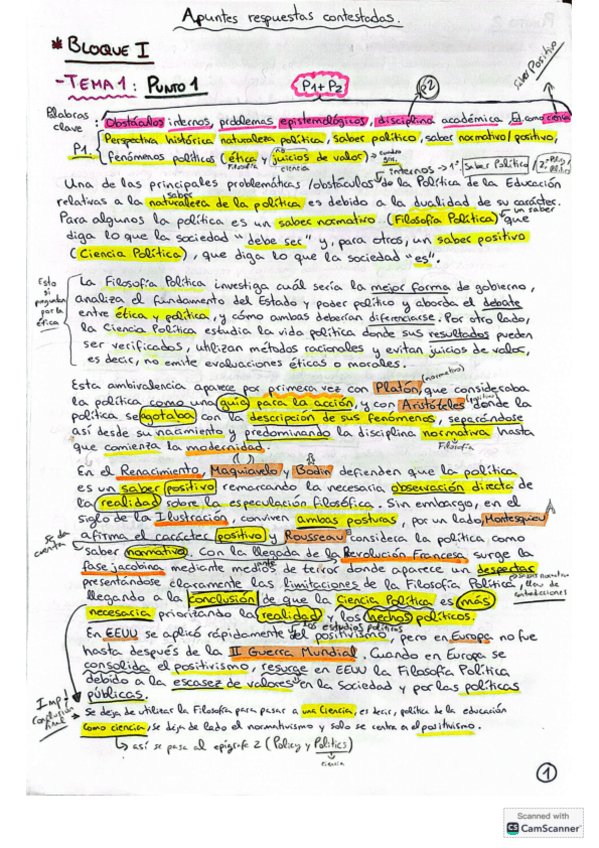 Apuntes respuestas contestadas.
* BLOQUE I
- TEMA 1: PUNTO 1
P1 + P2
P2
saber Positivo
Palabras clave: Obstáculos internos, problemas epistemológicos, disciplina académica Ed. como ciencia
P1. Perspectiva histórica naturaleza política, saber político, saber normativo/positivo,
fenómenos políticos (ética y no juicios de valor)
Filosofía
ciencia
internos → 1º Saber Político
Una de las principales problemáticas /obstáculos de la Política de la Educación
relativas a la naturaleza de la política es debido a la dualidad de su carácter.
saber
Para algunos la política es un saber normativo (Filosofía Política) que
un saber
diga lo que la sociedad "debe ser" y, para otros, un saber positivo
(Ciencia Política), que diga lo que la sociedad "es".
Esto si preguntan por la ética
La Filosofía Política investiga cuál sería la mejor forma de gobierno,
analiza el fundamento del Estado y poder político y aborda el debate
entre ética y política, y cómo ambas deberían diferenciarse. Por otro lado,
la Ciencia Política estudia la vida política donde sus resultados pueden
ser verificados, utilizan métodos racionales y evitan juicios de valor,
es decir, no emite evaluaciones éticas o morales.
Esta ambivalencia aparece por primera vez con Platón, que consideraba
(normativo)
la política como una guía para la acción, y con Aristóteles donde la
(positivo)
política se agotaba con la descripción de sus fenómenos, separándose
así desde su nacimiento y predominando la disciplina normativa hasta
Filosofía
que comienza la modernidad.
En el Renacimiento, Maquiavelo y Bodin defienden que la política
es un saber positivo remarcando la necesaria observación directa de
la realidad sobre la especulación filosófica. Sin embargo, en el
siglo de la Ilustración, conviven ambas posturas, por un lado Montesquieu
afirma el carácter positivo y Rousseau considera la política como
saber normativo. Con la llegada de la Revolución Francesa surge la
se da cuenta
fase jacobina mediante medios de terror donde aparece un despertar
presentándose claramente las limitaciones de la Filosofía Política,
llegando a la conclusión de que la Ciencia Política es más
necesaria priorizando la realidad y los hechos políticos.
En EEUU se aplicó rápidamente el positivismo, pero en Europa no fue
los estudios políticos
hasta después de la II Guerra Mundial. Cuando en Europa se
consolida el positivismo, resurge en EEUU la Filosofía Política
debido a la escasez de valores en la Sociedad y por las políticas
públicas.
Imp! Conclusión final
→ Se deja de utilizar la Filosofía para pasar a una Ciencia, es decir, política de la educación
como ciencia, se deja de lado el normativismo y solo se centra en el positivismo.
↳ así se pasa al epígrafe 2 (Policy y Politics)
ciencia
1
Scanned with
CS CamScanner